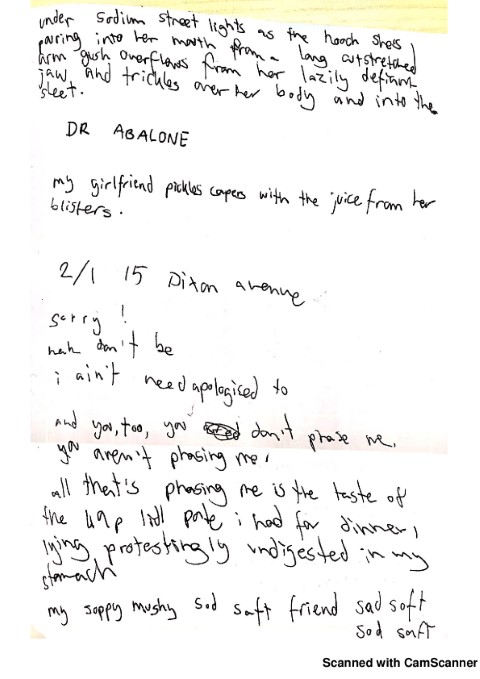 under sodium street lights as the hooch shes
pouring into her mouth from a long outstretched
arm gush overflows from her lazily defiant
jaw and trickles over her body and into the
sleet.
DR ABALONE
my girlfriend pickles capers with the juice from her
blisters.
2/1 15 Dixon avenue
sorry!
nah don't be
i ain't need apologised to
and you, too, you don't phase me.
you aren't phasing me.
all that's phasing me is the taste of
the 49p lidl pate i had for dinner,
lying protestingly undigested in my
stomach
my soppy mushy sod soft friend sad soft
sod soft
Scanned with CamScanner